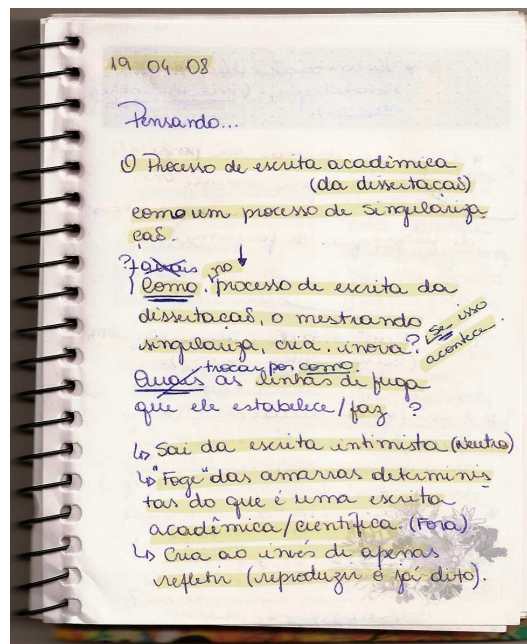 19 04 08
Pensando...
O Processo de escrita acadêmica
(da dissertação)
como um processo de singulariza
ção.
? Quais no
Como, processo de escrita da
dissertação, o mestrando
singulariza, cria, inova? Se isso
acontece.
trocar por como.
Quais as linhas de fuga
que ele estabelece/faz ?
↳ Sai da escrita intimista (Neutro)
↳ "Foge" das amarras determinis
tas do que é uma escrita
acadêmica/científica. (Fora)
↳ Cria ao invés de apenas
refletir (reproduzir o já dito).